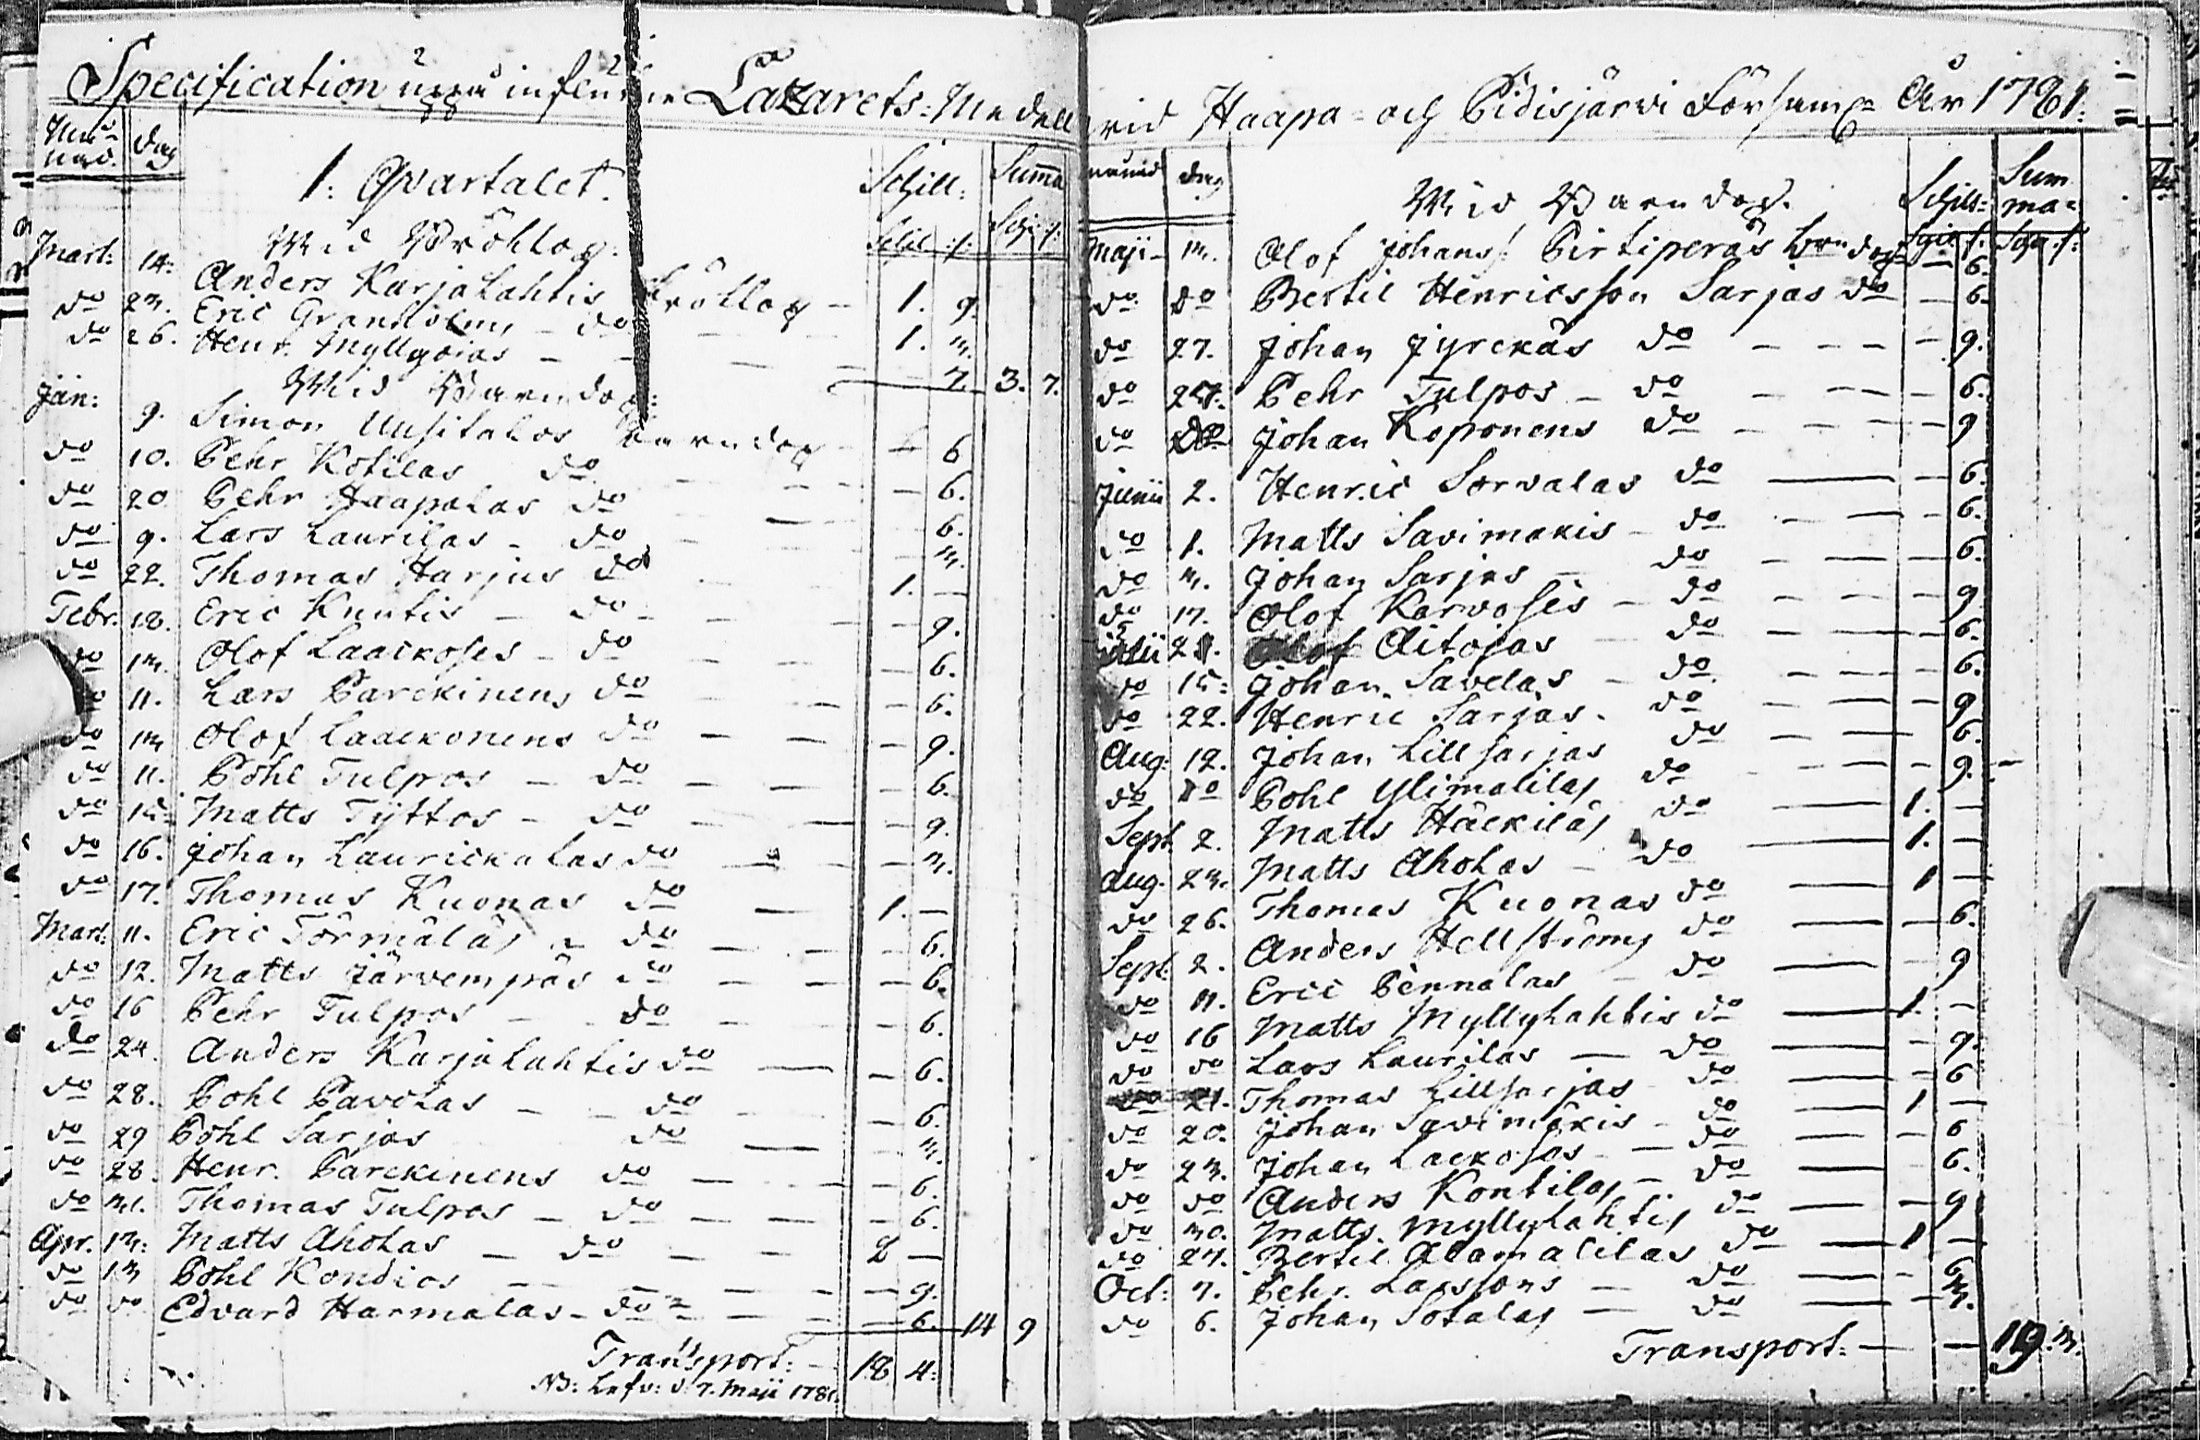 Specification uppå influtne Lazarets: Medell
Månad. Dag
1: Qvartalet. Schill: Summa
Mart: 14: Wid Bröllop: Schil: /: Sch: /:
Anders Karjalahtis Bröllop — 1. 9.
do 23. Eric Granholms — do 1. 3.
do 26. Henr. Myllyojas — — 7. 3. 7.
Wid Barndop:
Jan: 9. Simon Uusitalos Barndop — 6
do 10. Pehr Kotilas do — 6.
do 20 Pehr Haapalas do — 6.
do 9. Lars Laurilas — do — 3.
do 22. Thomas Harjus do 1. —
Febr. 18. Eric Knutis — do — 9.
do 13. Olof Laackoses — do — 6.
do 11. Lars Parckinens do — 6.
do 13 Olof Laackonens do — 9.
do 11. Pohl Tulpos — do — 6.
do 15 Matts Tyttos — do — 9.
do 16. Johan Laurickalas do — 3.
do 17. Thomas Kuonas do 1. —
Mart: 11. Eric Törmäläs — do — 6.
do 12. Matts Järvempäs do — 6.
do 16 Pehr Tulpos — do — 6.
do 24. Anders Karjalahtis do — 6.
do 28. Pohl Pavolas — do — 6.
do 29 Pohl Sarjas do — 3.
do 28. Henr. Parckinens do — 6.
do 31. Thomas Tulpos — do — 6.
Apr. 13: Matts Aholas — do — 2 —
do 13 Pohl Kondios — 9.
do do Edvard Harmalas — do — 6. 14 9
Transport: 18 4:
NB: Lefv: d. 7. Maji 1781.
wid Haapa- och Pidisjärvi Församl: År 1781:
månad dag Wid Barndop. Schill: Summa=
Maji — 13. Olof Johanss: Pirtiperäs barndop — 6.
do do Bertil Henricsson Sarjas do — 6.
do 27. Johan Jyrckäs do — 9.
do 27. Pehr Tulpos — do — 6.
do do Johan Koponens do — 9
Junii 2. Henric Sorvalas do — 6.
do 1. Matts Savimäkis — do — 6.
do 3. Johan Sarjas — do — 6.
do 17. Olof Karvoses — do — 9
Julii 21. Olof Aitojas — do — 6.
do 15: Johan Savelas — do — 6.
do 22. Henric Sarjas. do — 9
Aug: 12. Johan Lillsarjas do — 6.
do do Pohl Ylimalilas do — 9. —
Sept 2. Matts Häckiläs do 1. —
Aug. 23. Matts Aholas — do 1. —
do 26. Thomas Kuonas do 1 —
Sept: 2. Anders Hellströms do — 6.
do 11. Eric Pennalas — do — 9
do 16 Matts Myllylahtis do 1. —
do do Lars Laurilas — do — 9.
do 21. Thomas Lillsarjas do — 6
do 20. Johan Savimäkis — do 1 —
do 23. Johan Lackosos — do — 6
do do Anders Kontilas — do — 6.
do 30. Matts. Myllylahtis do — 9
do 27. Bertil Alamalilas do 1 —
Oct: 7. Pehr. Larssons — do — 6
do 6. Johan Sotalas — do — 3.
Transport: — — 19. 3.